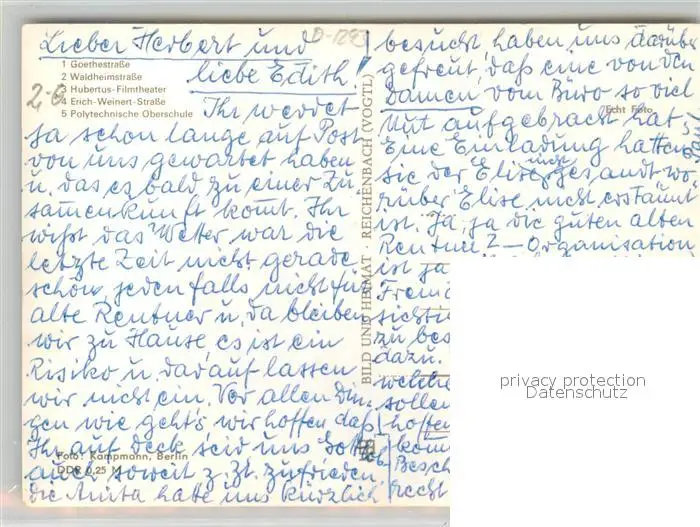 Lieber Herbert und
liebe Edith!
1 Goethestraße
2 Waldheimstraße
3 Hubertus-Filmtheater
4 Erich-Weinert-Straße
5 Polytechnische Oberschule
Ihr werdet
ja schon lange auf Post
von uns gewartet haben
u. das es bald zu einer Zu
sammenkunft kommt. Ihr
wißt das Wetter war die
letzte Zeit nicht gerade
schön, jedenfalls nicht für
alte Rentner u. da bleiben
wir zu Hause, es ist ein
Risiko u. darauf lassen
wir nicht ein. Vor allen Din-
gen wie geht's wir hoffen daß
Ihr auf Deck seid uns
auch soweit z. Zt. zufrieden
die Anita hatte uns kürzlich
Foto: Kampmann, Berlin
DDR 0,25 M
BILD UND HEIMAT · REICHENBACH (VOGTL)
D-1293
besucht, haben uns darüber
gefreut, daß eine von den
Damen vom Büro so viel
Echt Foto
Mut aufgebracht hat.
Eine Einladung hatten
sie der Elise gesandt wo-
rüber Elise nicht erstaunt
ist. Ja, ja die guten alten
Rentner
Organisation
ist ja
sicht
zu bes
dazu.
welche
sollen
hoffen
kom
Besch
recht
privacy protection
Datenschutz